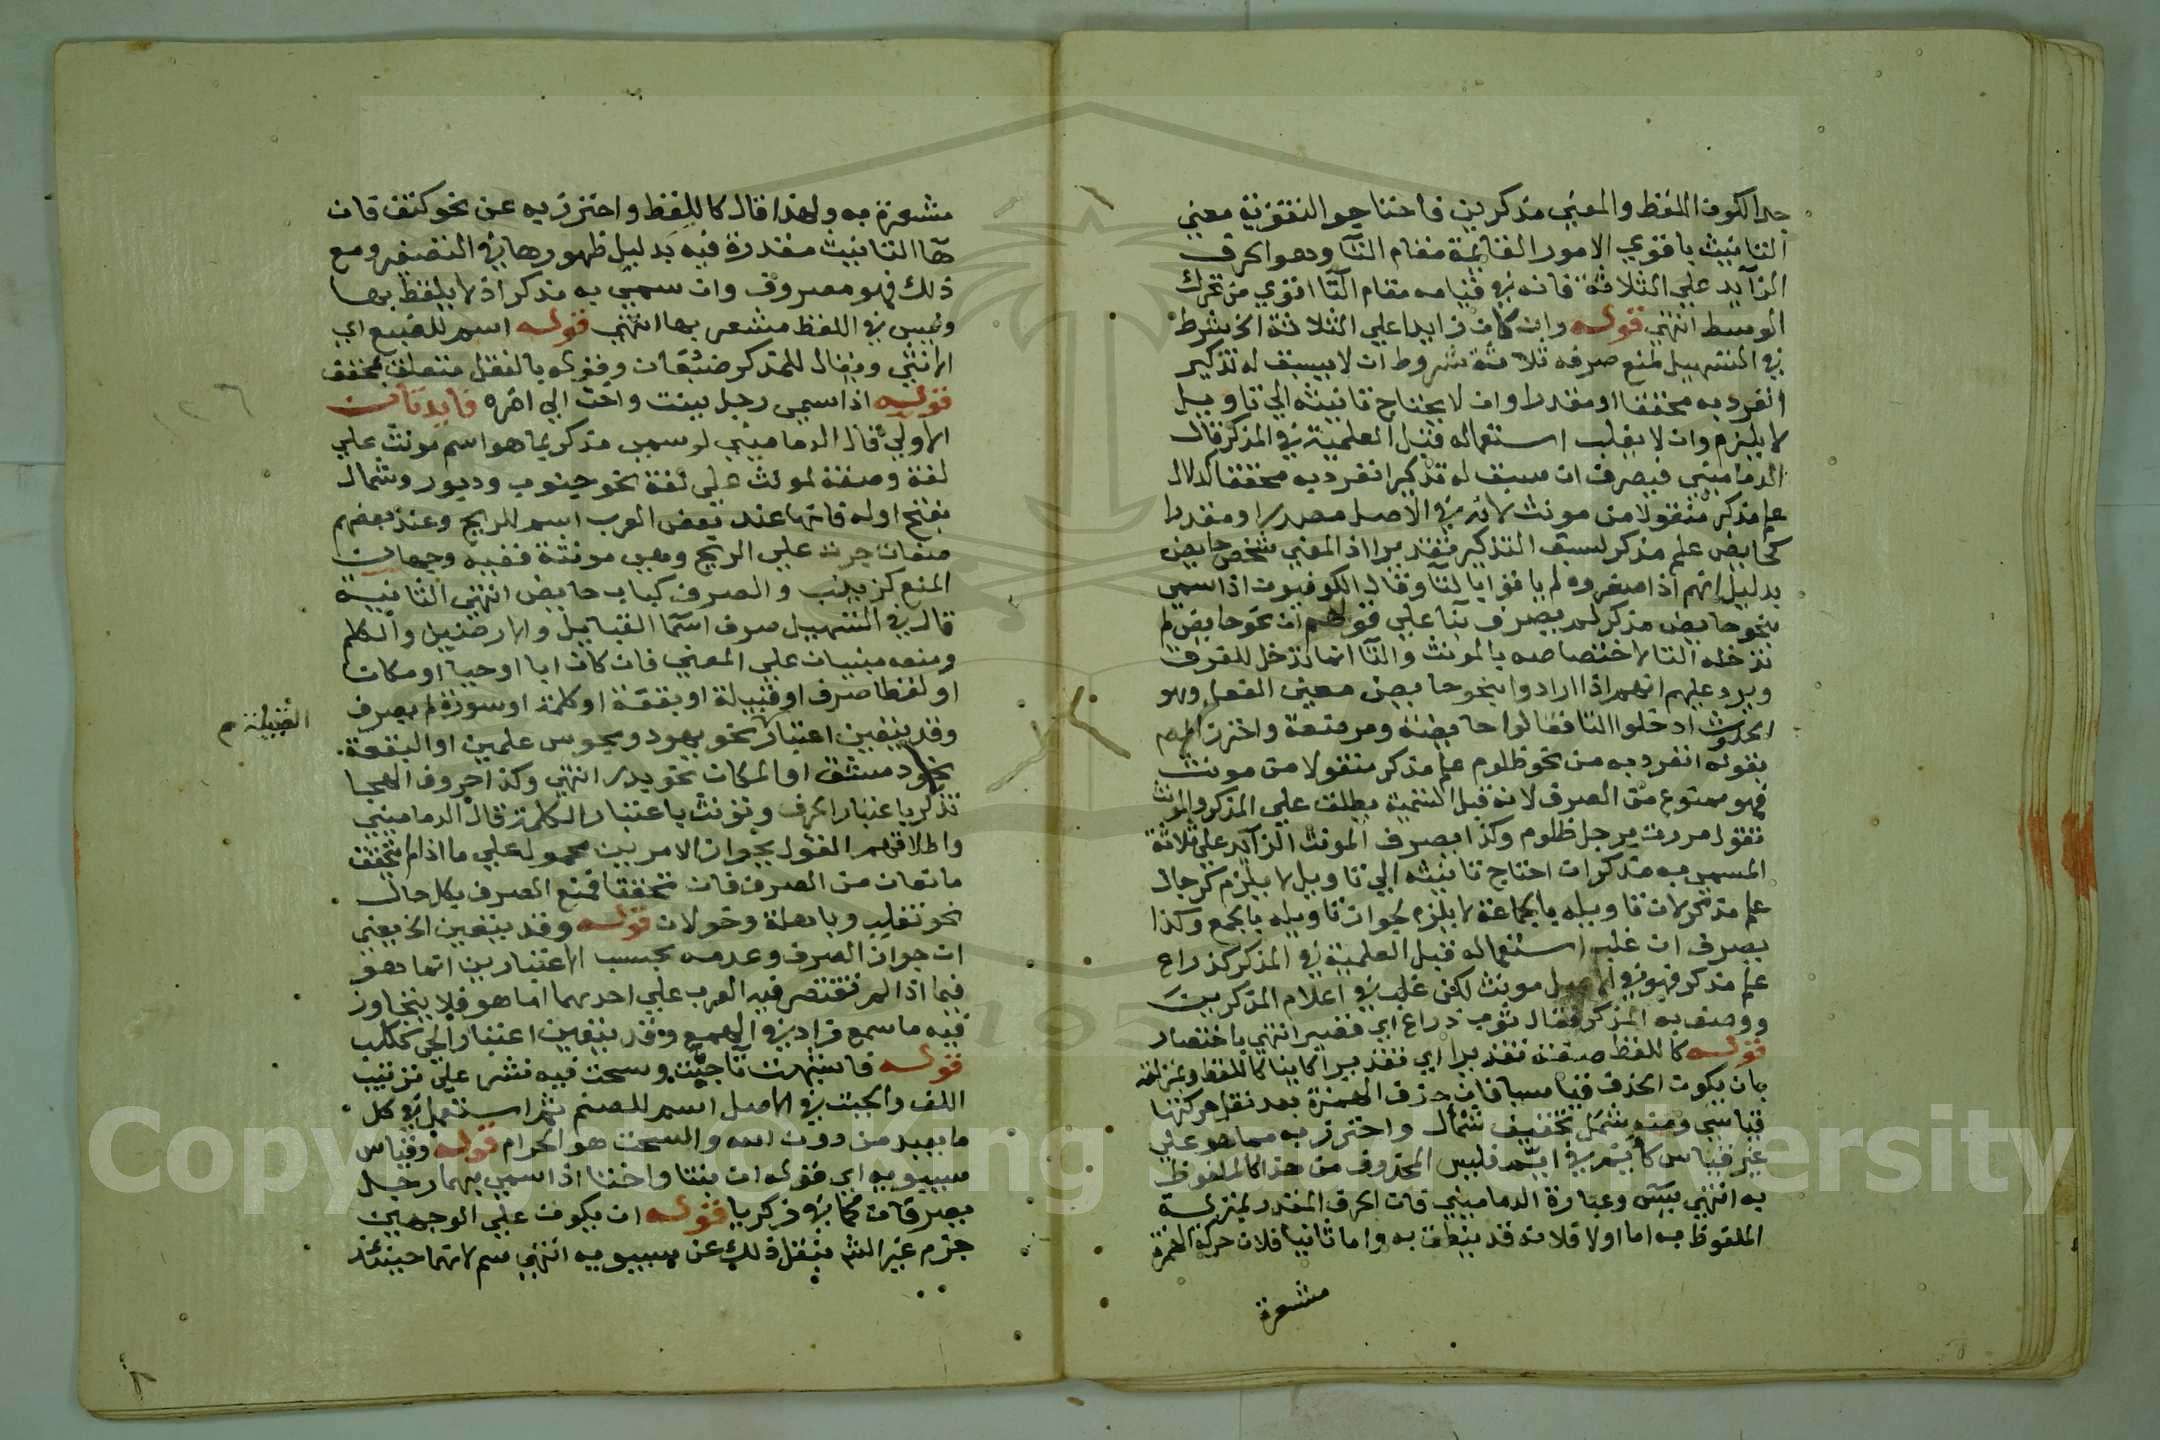 جدا لكون اللفظ والمعني مذكرين فاحتاجوا لتقوية معني
التانيث باقوي الامور القايمة مقام التآ وهو الحرف
الزآيد علي الثلاثة فانه في قيامه مقام التآ اقوي من تحرك
الوسط انتهي قوله وان كان زايدا علي الثلاثة الخ شرط
في التسهيل لمنع صرفه ثلاثة شروط ان لا يسبق له تذكير
انفرد به محققا او مقدرا وان لا يحتاج تانيثه الي تاويل
لا يلزم وان لا يغلب استعماله قبل العلمية في المذكر قال
الدماميني فيصرف ان سبق له تذكير انفرد به محققا كدلال
علم مذكر منقولا من مونث لانه في الاصل مصدر او مقدرا
كحايض علم مذكر لسبق التذكير تقديرا اذ المعني شخص حايض
بدليل انهم اذا صغروه لم ياتوا بالتآ وقال الكوفيون اذا سمي
بنحو حايض مذكر لم يصرف بنآ علي قولهم ان نحو حايض لم
تدخله التا لاختصاصه بالمونث والتآ انما تدخل للفرق
ويرد عليهم انهم اذا ارادوا بنحو حايض معني الفعل وهو
الحدوث ادخلوا التا فقالوا حايضة ومرضعة واحترز
بقوله انفرد به من نحو ظلوم علم مذكر منقولا من مونث
فهو ممنوع من الصرف لانه قبل التسمية يطلق علي المذكر والمونث
تقول مررت برجل ظلوم وكذا يصرف المونث الزآيد علي ثلاثة
المسمي به مذكر ان احتاج تانيثه الي تاويل لا يلزم كرجال
علم مذكر لان تاويله بالجماعة لا يلزم لجواز تاويله بالجمع وكذا
يصرف ان غلب استعماله قبل العلمية في المذكر كذراع
علم مذكر فهو في الاصل مونث لكن غلب في اعلام المذكرين
ووصف به المذكر فقال ثوب ذراع اي قصير انتهي باختصار
قوله كاللفظ صفة تقديرا اي تقديرا كاينا كاللفظ وبمنزلته
بان يكون الحذف قياسيا فان حذف الهمزة بعد نقل حركتها
قياسي ومنه شمل تخفيف شمأل واحترز به مما هو علي
غير قياس كايم في ايم فليس المحذوف من هذا كالملفوظ
به انتهي يس وعبارة الدماميني فان الحرف المقدر بمنزلة
الملفوظ به اما اولا فلانه قد ينطق به واما ثانيا فلان حركة الهمزة
مشعرة
مشعرة به ولهذا قال كاللفظ واحترز به عن نحو كتف فان
هآ التانيث مقدرة فيه بدليل ظهورها في التصغير ومع
ذلك فهو مصروف وان سمي به مذكر اذ لا يلفظ بها
وليس في اللفظ مشعر بها انتهي قوله اسم للضبع اي
الانثي ويقال للمذكر ضبعان وقوله بالنقل متعلق بمخفف
قوله اذا سمي رجل ببنت واخت الي اخره فايدتان
الاولي قال الدماميني لو سمي مذكر بما هو اسم مونث علي
لغة وصفة لمونث علي لغة نحو جنوب ودبور وشمال
بفتح اوله فانها عند بعض العرب اسم للريح وعند بعضهم
صفات جرت علي الريح وهي مونثة ففيه وجهان
المنع كزينب والصرف كباب حايض انتهي الثانية
قال في التسهيل صرف اسمآ القبايل والارضين والكلم
ومنعه مبنيان علي المعني فان كان ابا او حيا او مكانا
او لفظا صرف او قبيلة او بقعة او كلمة او سورة لم يصرف
وقد يتعين اعتبار نحو يهود ومجوس علمين او البقعة
القبيلة م
نحو دمشق او المكان نحو بدر انتهي وكذا حروف الهجا
تذكر باعتبار الحرف وتونث باعتبار الكلمة قال الدماميني
واطلاقهم القول بجواز الامرين محمول علي ما اذا لم يتحقق
مانعان من الصرف فان تحققا فمنع الصرف بكل حال
نحو تغلب وباهلة وخولان قوله وقد يتعين الخ يعني
ان جواز الصرف وعدمه بحسب الاعتبارين انما هو
فيما اذا لم تقتصر فيه العرب علي احدهما اما هو فلا يتجاوز
فيه ما سمع فزاد في الهمع وقد يتعين اعتبار الحي ككلب
قوله فاشبهت تآ جبت وسحت فيه نشر علي ترتيب
اللف والجبت في الاصل اسم للصنم ثم استعمل في كل
ما يعبد من دون الله والسحت هو الحرام قوله وقياس
سيبويه اي قوله ان بنتا واختا اذا سمي بهما رجل
يصرفان كما في ذكريا قوله ان يكون علي الوجهين
جزم غير الش بنقل ذلك عن سيبويه انتهي سم لانهما حينئذ